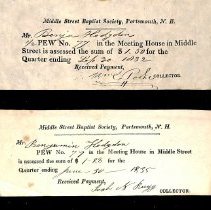 Middle Street Baptist Society, Portsmouth, N. H.
Mr. Benja Hodgdon
1/2 PEW No. 77 in the Meeting House in Middle
Street is assessed the sum of $ 1.50 for the
Quarter ending Sep 20 1832
Received Payment,
COLLECTOR.
Middle Street Baptist Society, Portsmouth, N. H.
Mr. Benjamin Hodgdon
PEW No. 77 in the Meeting House in Middle Street
is assessed the sum of $ 1.88 for the
Quarter ending June 30 1835
Received Payment,
COLLECTOR.